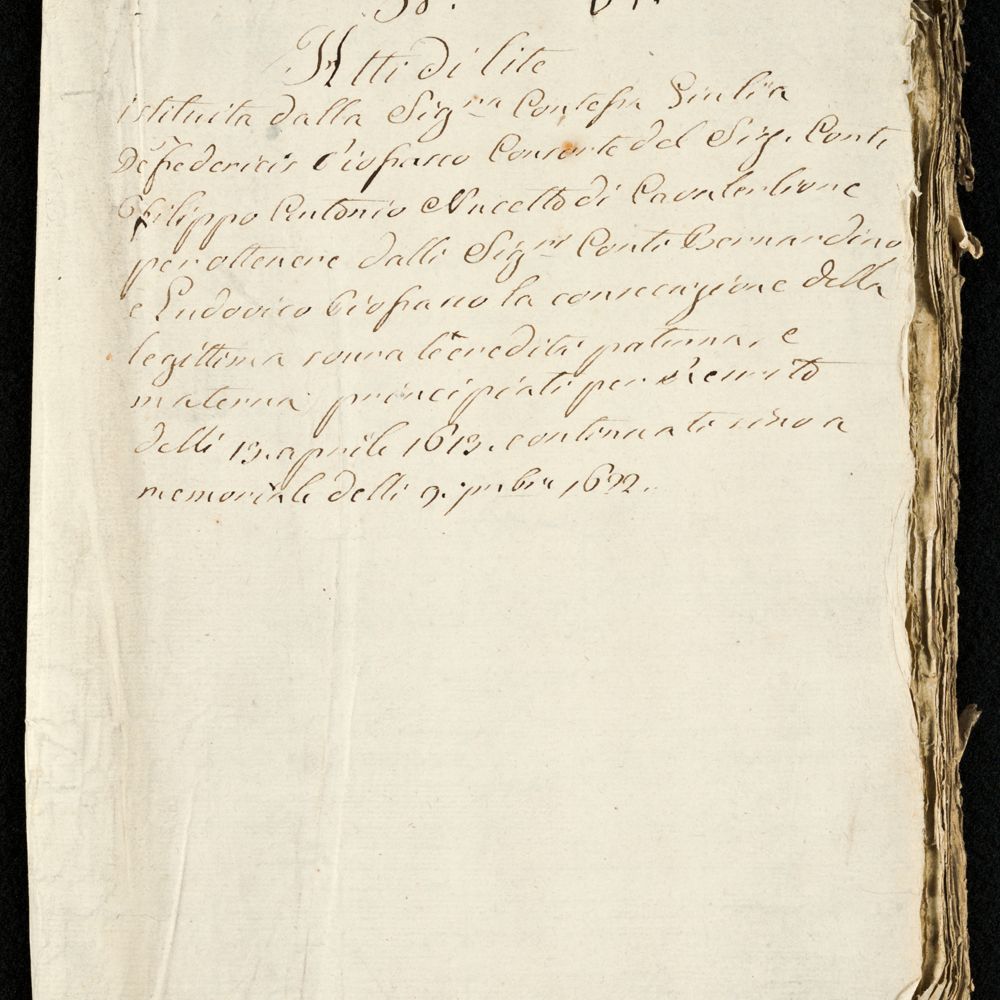 Atti di lite
istituita dalla Sig.ra Contessa Giulia
De federicis Piossasco Consorte del Sig. Conte
Filippo Antonio Nucetto di Cavalerlione
per ottenere dalli Sig.ri Conti Bernardino
e Ludovico Piossasco la consecuzione della
legittima sovra le eredità paterna, e
materna principiati per decreto
delli 13. aprile 1613. continuati sino a
memoriale delli 9. 1622.